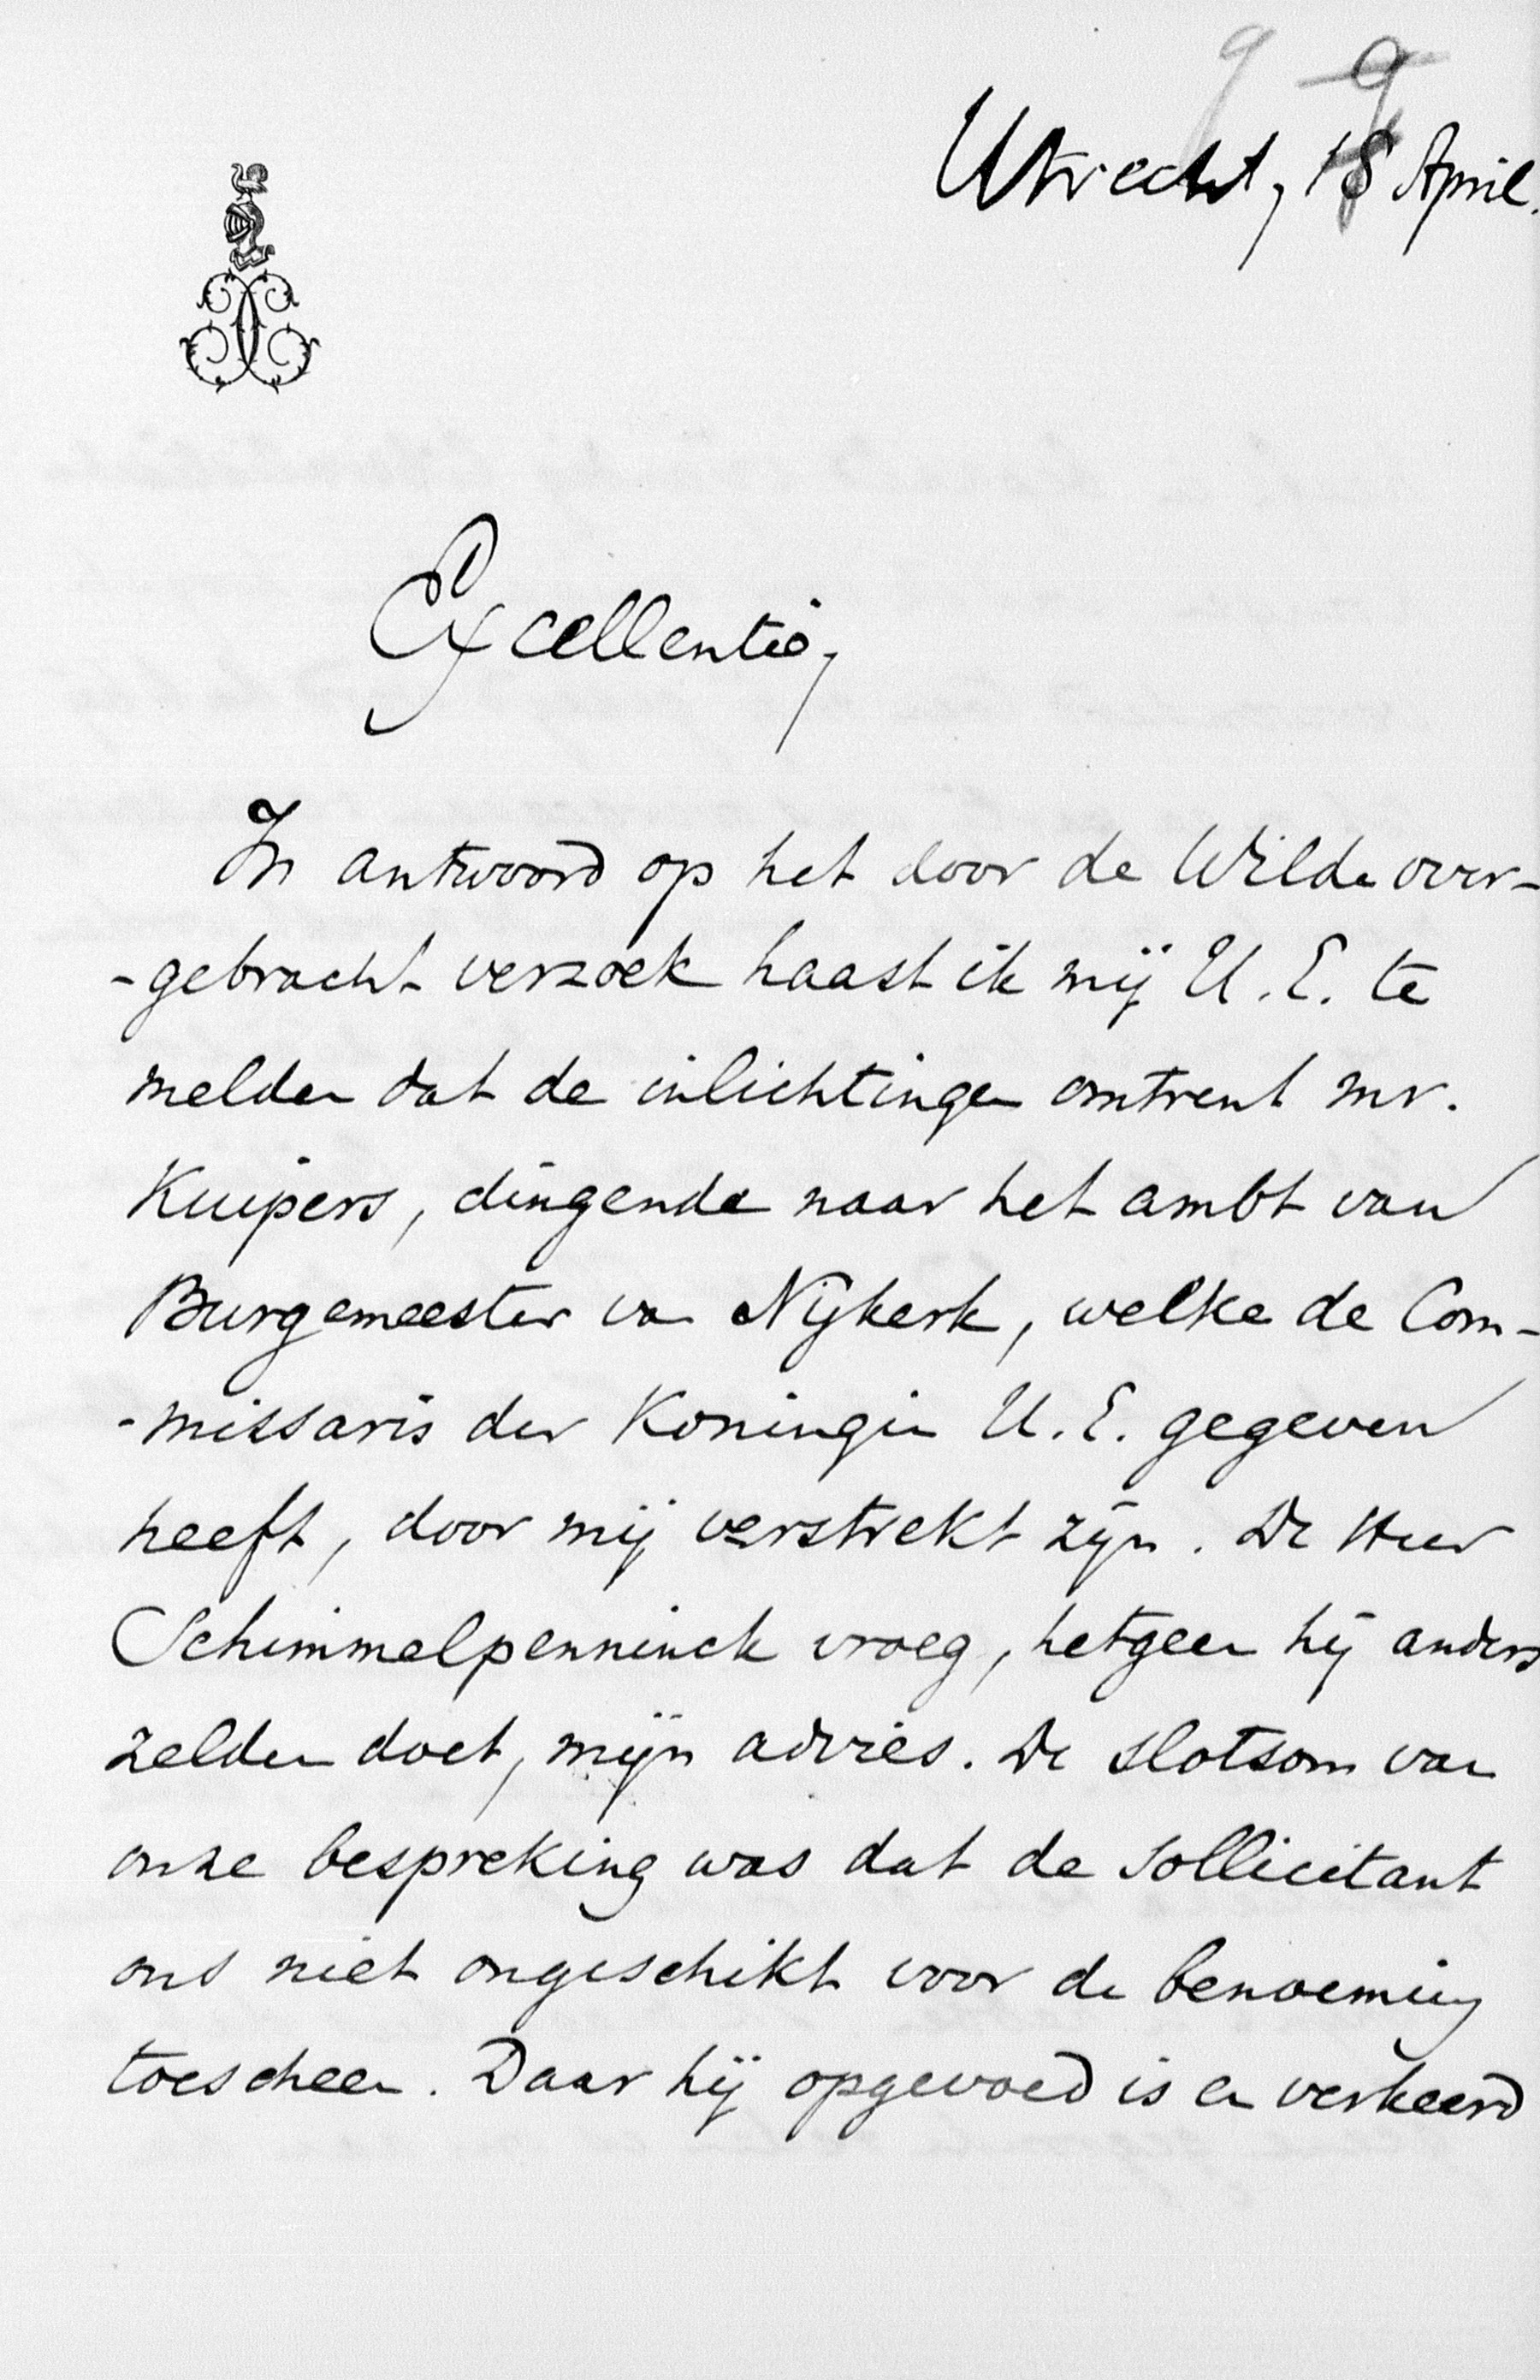 9 9
Utrecht, 18 April.
Excellentie,
In antwoord op het door de Wilde over-
-gebracht verzoek haast ik mij U. E. te
melden dat de inlichtingen omtrent mr.
Kuipers, dingende naar het ambt van
Burgemeester van Nijkerk, welke de Com-
-missaris der Koningin U. E. gegeven
heeft, door mij verstrekt zijn. De Heer
Schimmelpenninck vroeg, hetgeen hij anders
zelden doet, mijn advies. De slotsom van
onze bespreking was dat de sollicitant
ons niet ongeschikt voor de benoeming
toescheen. Daar hij opgevoed is en verkeerd